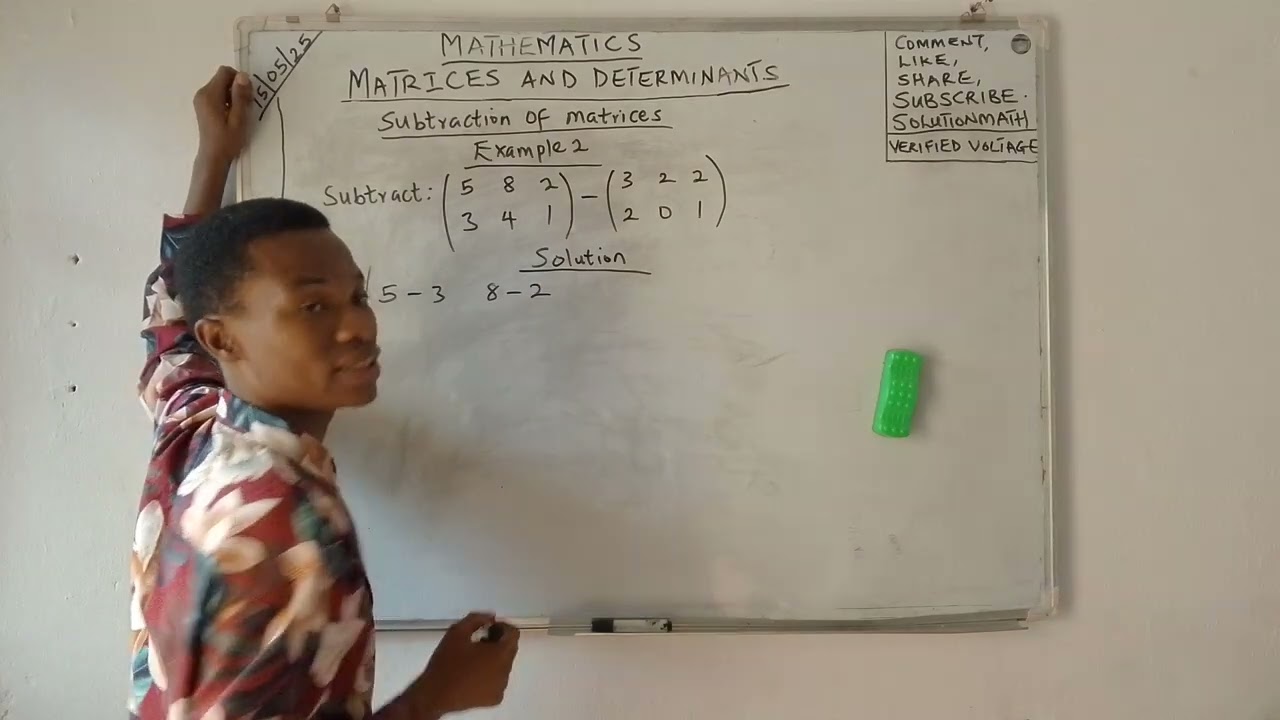 15/05/25
MATHEMATICS
MATRICES AND DETERMINANTS
Subtraction of matrices
Example 2
Subtract: (5 8 2) - (3 2 2)
(3 4 1) (2 0 1)
Solution
(5-3 8-2
COMMENT,
LIKE,
SHARE,
SUBSCRIBE.
SOLUTIONMATH
VERIFIED VOLTAGE